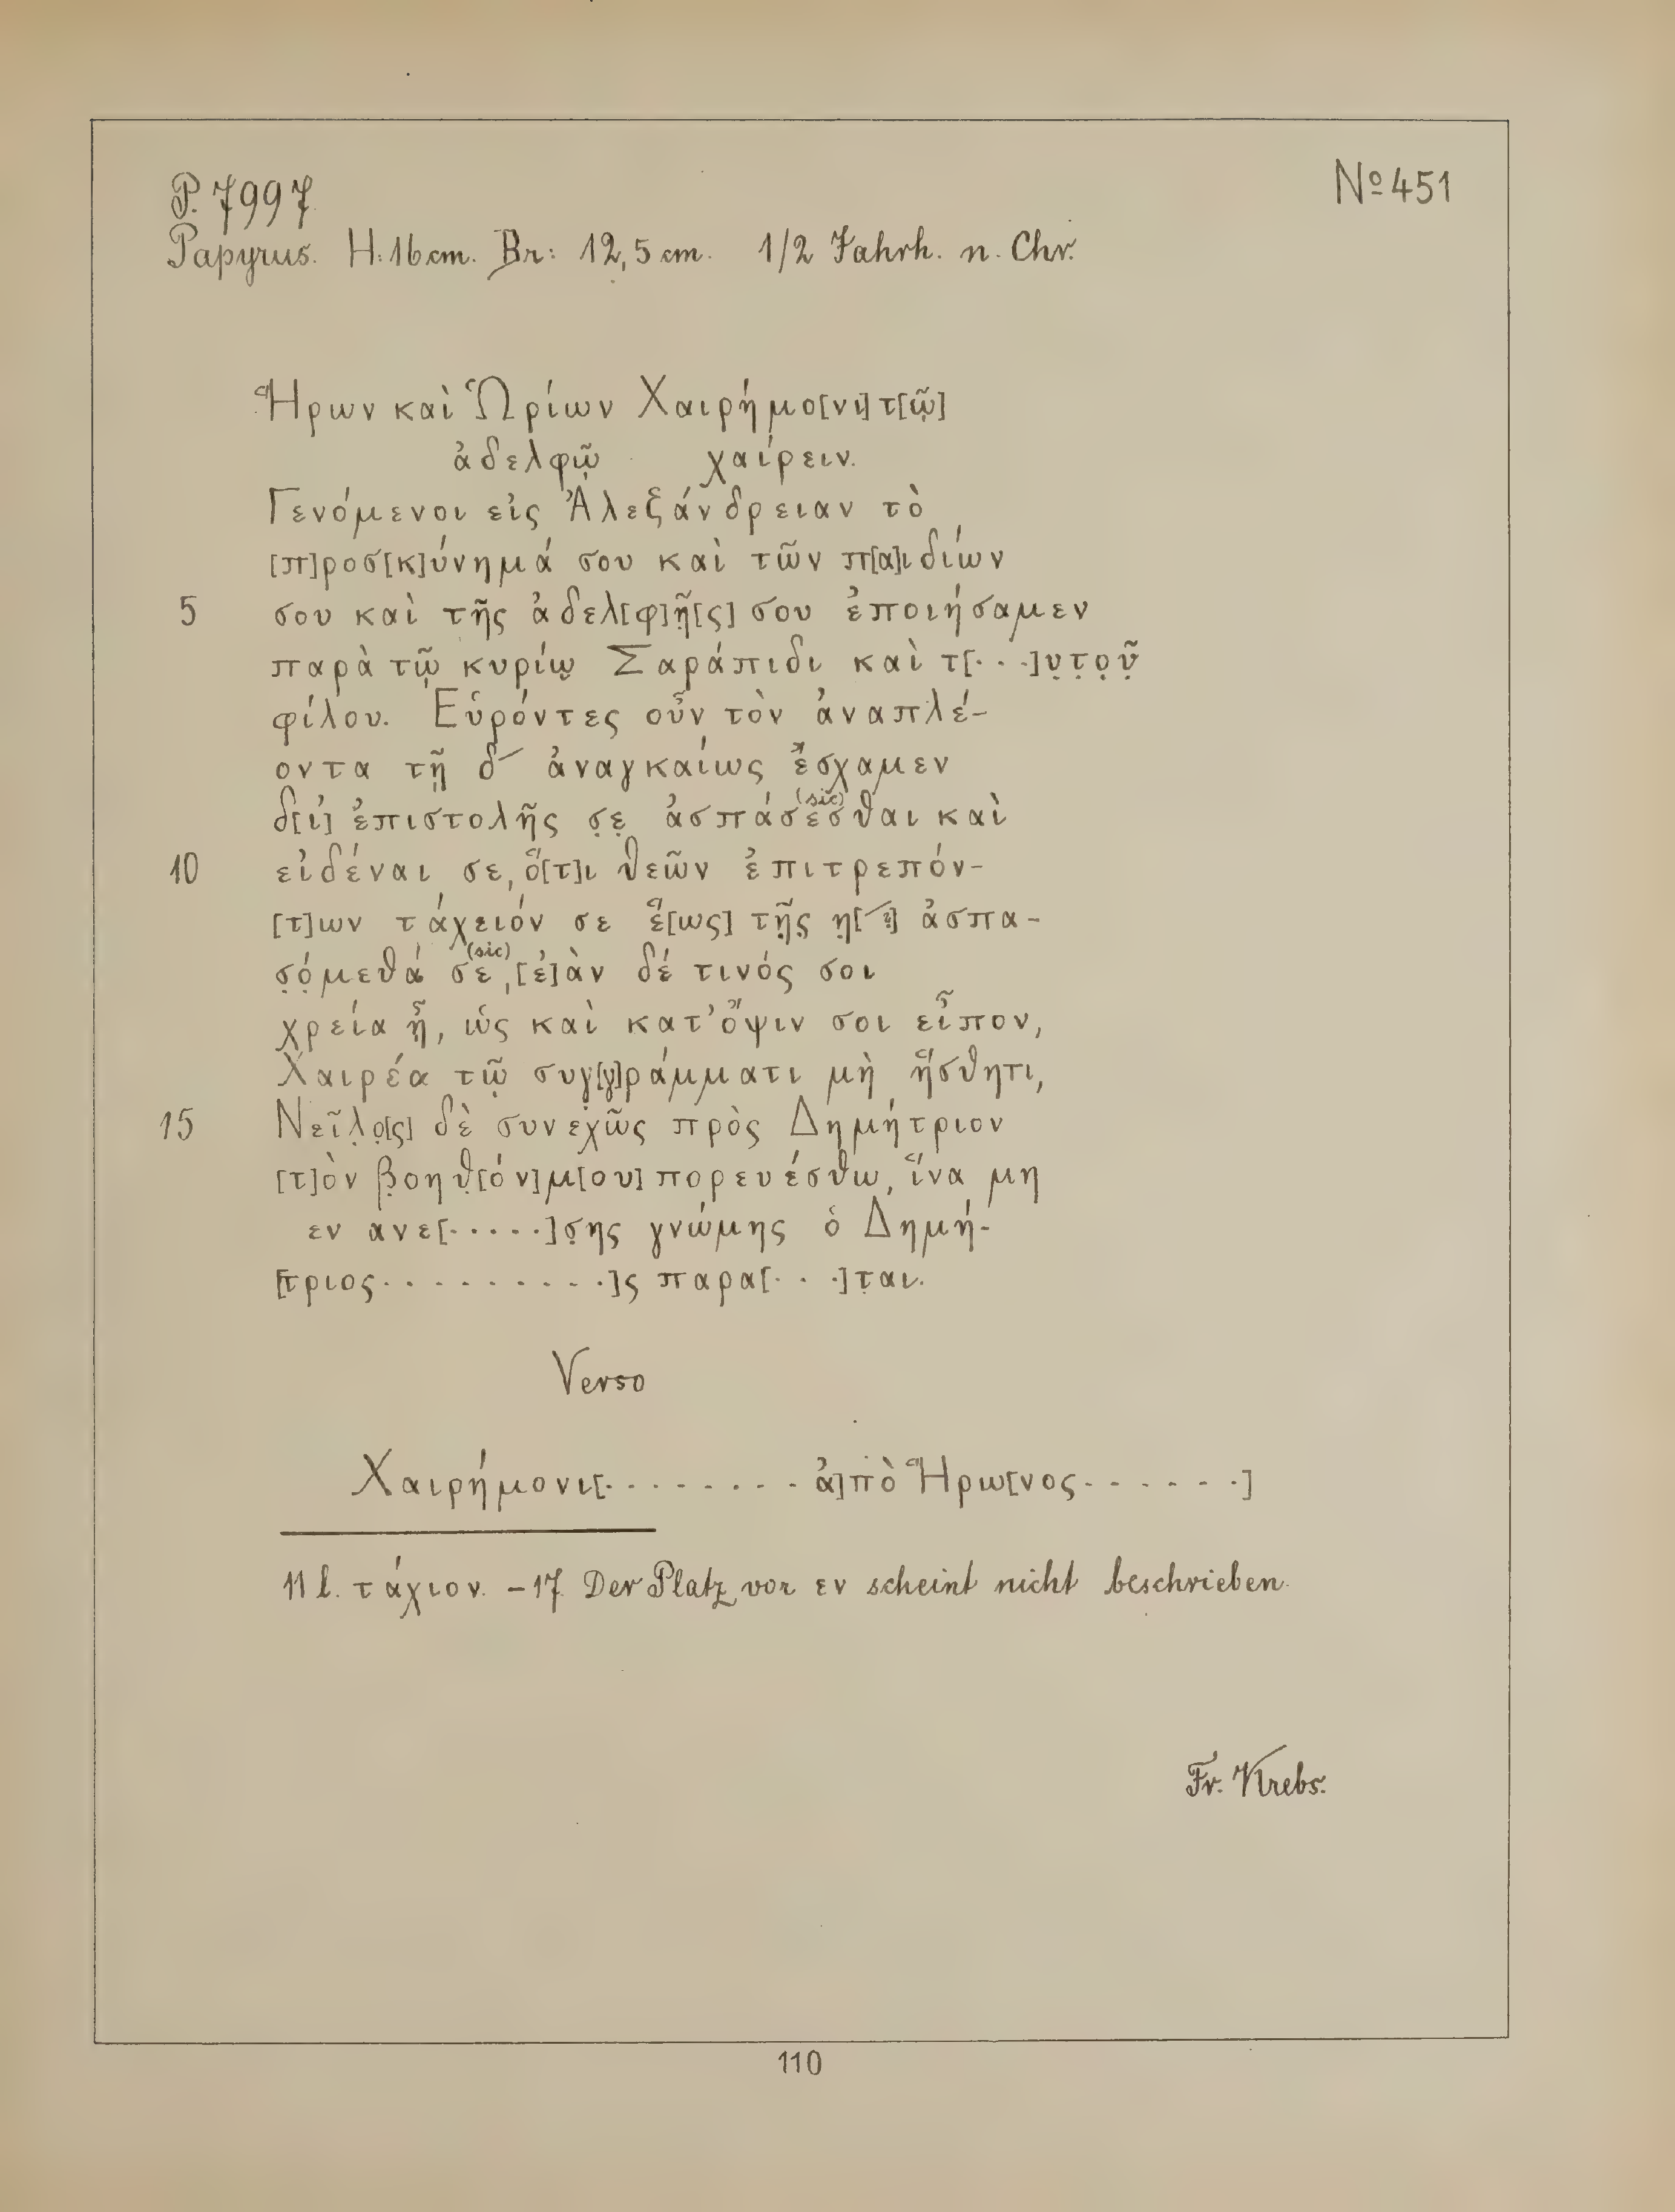 P. 7997
No 451
Papyrus. H: 16 cm. Br: 12,5 cm. 1/2 Jahrh. n. Chr.
Ἥρων καὶ Ὡρίων Χαιρήμο[νι] τ[ῷ]
ἀδελφῷ χαίρειν.
Γενόμενοι εἰς Ἀλεξάνδρειαν τὸ
[π]ροσ[κ]ύνημά σου καὶ τῶν π[α]ιδίων
5 σου καὶ τῆς ἀδελ[φ]ῆ[ς] σου ἐποιήσαμεν
παρὰ τῷ κυρίῳ Σαράπιδι καὶ τ[· · ·]υ̣τ̣ο̣ῦ̣
φίλου. Εὑρόντες οὖν τὸν ἀναπλέ-
οντα τῇ δ ἀναγκαίως ἔσχαμεν
δ[ι] ἐπιστολῆς σ̣ε̣ ἀσπάσεσθαι (sic) καὶ
10 εἰδέναι σε, ὅ[τ]ι θεῶν ἐπιτρεπόν-
[τ]ων τάχειόν σε ἕ[ως] τῆς η[ ̅ ?] ἀσπα-
σ̣ό̣μεθά σε (sic), [ἐ]ὰν δέ τινός σοι
χρεία ᾖ, ὡς καὶ κατ' ὄψιν σοι εἶπον,
Χαιρέα τῷ συγ̣[γ]ράμματι μὴ ἥσθητι,
15 Νεῖλ̣ο̣[ς] δὲ συνεχῶς πρὸς Δημήτριον
[τ]ὸν β̣οηθ̣[όν] μ[ου] πορευέσθω, ἵνα μη
εν ανε[· · · · ·]σ̣ης γνώμης ὁ Δημή-
[τριος · · · · · · · · · ·]ς παρα[· · ·]τ̣αι.
Verso
Χαιρήμονι[· · · · · · · · · ἀ]πὸ Ἥρω[νος · · · · · · ·]
11 l. τάχιον. – 17. Der Platz vor εν scheint nicht beschrieben.
Fr. Krebs.
110